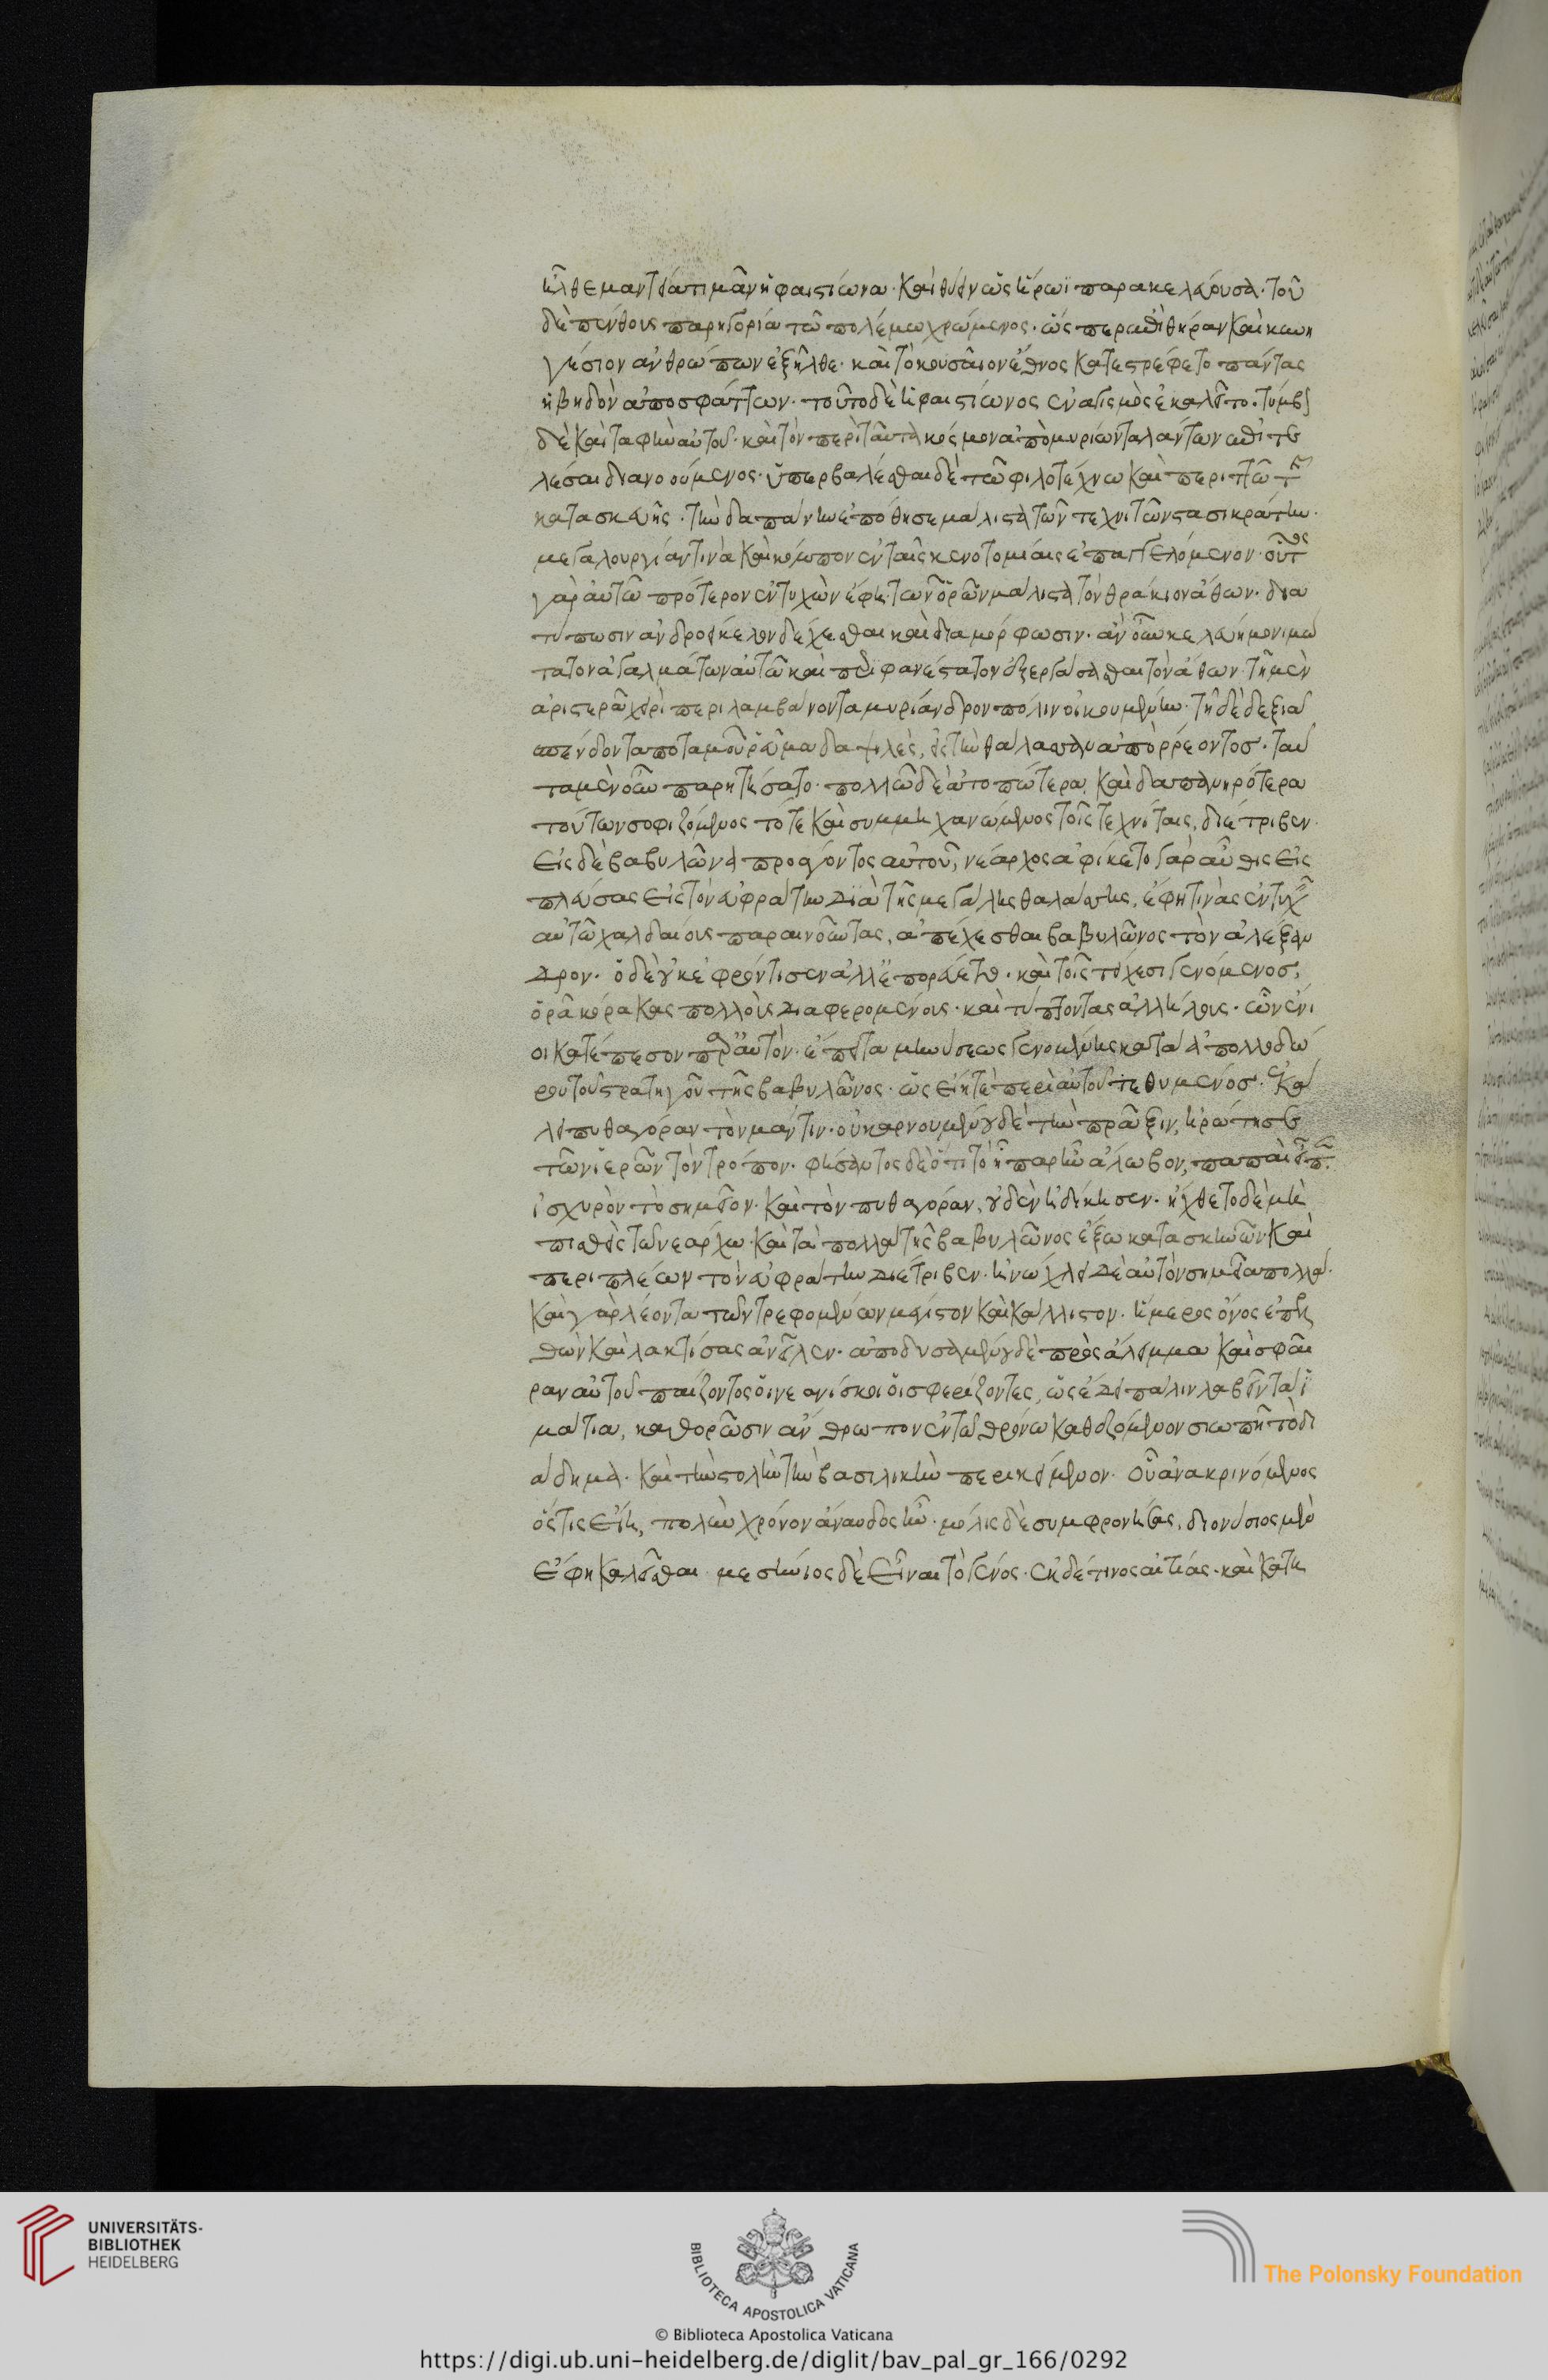 ἦλθε μαντεία τιμᾶν ἡφαιστίωνα. καὶ θύειν ὡς ἥρωϊ παρακελεύουσα. τοῦ
δὲ πένθους παρηγορία τῶ πολέμω χρώμενος. ὥσπερ ἐπὶ θήραν καὶ κυνη
γέσιον ἀνθρώπων ἐξῆλθε. καὶ τὸ κουσαῖον ἔθνος κατεστρέφετο πάντας
ἡβηδὸν ἀποσφάττων. τοῦτο δὲ ἡφαιστίωνος ἐναγισμὸς ἐκαλεῖτο. τύμβον
δὲ καὶ ταφὴν αὐτοῦ. καὶ τὸν περὶ ταῦτα κόσμον ἀπὸ μυρίων ταλάντων ἐπιτε
λέσαι διανοούμενος. ὑπερβαλέσθαι δὲ τῶ φιλοτέχνω καὶ περιττῶ τῆς
κατασκευῆς. τὴν δαπάνην ἐπόθησε μάλιστα τῶν τεχνιτῶν στασικράτην.
μεγαλουργίαν τινὰ καὶ κόμπον ἐν ταῖς κενοτομίαις ἐπαγγελόμενον. οὗτος
γὰρ αὐτῶ πρότερον ἐντυχὼν ἔφη. τῶν ὀρῶν μάλιστα τὸν θράκιον ἄθων. δια
τύπωσιν ἀνδροείκελον δέχεσθαι καὶ διαμόρφωσιν. ἂν οὖν κελεύη μονιμώ
τατον ἀγαλμάτων αὐτῶ καὶ περιφανέστατον ἐξεργάσασθαι τὸν ἄθων. τῆ μὲν
ἀριστερᾶ χειρὶ περιλαμβάνοντα μυρίανδρον πόλιν οἰκουμένην. τῆ δὲ δεξιᾶ
σπένδοντα ποταμοῦ ῥεῦμα δαψιλὲς, εἰς τὴν θάλασσαν ἀπορρέοντος. ταῦ
τα μὲν οὖν παρητήσατο. πολλῶ δὲ ἀτοπώτερα καὶ δαπανηρότερα
τούτων σοφιζόμενος τότε καὶ συμμηχανώμενος τοῖς τεχνίταις, διέτριβεν.
Εἰς δὲ βαβυλῶνα προαγόντος αὐτοῦ, νέαρχος ἀφίκετο γὰρ αὖθις εἰς
πλεύσας εἰς τὸν εὐφράτην διὰ τῆς μεγάλης θαλάσσης, ἔφη τινὰς ἐντυχεῖν
αὐτῶ χαλδαίους παραινοῦντας, ἀπέχεσθαι βαβυλῶνος τὸν ἀλέξαν
δρον. ὁ δὲ οὐκ ἐφρόντισεν ἀλλ' ἐπορεύετο. καὶ τοῖς τείχεσι γενόμενος,
ὁρᾶ κόρακας πολλοὺς διαφερομένους. καὶ τύπτοντας ἀλλήλους. ὧν ἔνι
οι κατέπεσον παρ' αὐτὸν. ἔπειτα μηνύσεως γενομένης κατὰ ἀπολλοδώ
ρου τοῦ στρατηγοῦ τῆς βαβυλῶνος. ὡς εἴη τὲ περὶ αὐτοῦ τεθυμένος. ἐκά
λει πυθαγόραν τὸν μάντιν. οὐκ ἀρνουμένου δὲ τὴν πρᾶξιν, ἠρώτησε
τῶν ἱερῶν τὸν τρόπον. φήσαντος δὲ ὅτι τὸ ἧπαρ ἦν ἄλωβον, παπαὶ εἶπεν
ἰσχυρὸν τὸ σημεῖον. καὶ τὸν πυθαγόραν, οὐδὲν ἠδίκησεν. ἤχθετο δὲ μὴ
πεισθεὶς τῶ νεάρχω. καὶ τὰ πολλὰ τῆς βαβυλῶνος ἔξω κατασκηνῶν καὶ
περιπλέων τὸν εὐφράτην διέτριβεν. ἠνώχλει δὲ αὐτὸν σημεῖα πολλά.
καὶ γὰρ λέοντα τῶν τρεφομένων μέγιστον καὶ κάλλιστον. ἥμερος ὄνος ἐπελ
θὼν καὶ λακτίσας ἀνεῖλεν. ἀποδυσαμένου δὲ πρὸς ἄλειμμα καὶ σφαῖ
ραν αὐτοῦ παίζοντος οἱ νεανίσκοι οἱ σφερίζοντες, ὡς ἔδει πάλιν λαβεῖν τὰ ἱ
μάτια, καθορῶσιν ἄνθρωπον ἐν τῶ θρόνω καθεζόμενον σιωπῆ τὸ δι
άδημα. καὶ τὴν στολὴν τὴν βασιλικὴν περικείμενον. οὗ ἀνακρινόμενος
ὅστις εἴη, πολὺν χρόνον ἄναυδος ἦν. μόλις δὲ συμφρονήσας, διονύσιος μὲν
ἔφη καλεῖσθαι. μεσήνιος δὲ εἶναι τὸ γένος. ἐκ δέ τινος αἰτίας. καὶ κατη
© Biblioteca Apostolica Vaticana
UNIVERSITÄTS-
BIBLIOTHEK
HEIDELBERG
BIBLIOTECA APOSTOLICA VATICANA
The Polonsky Foundation
https://digi.ub.uni-heidelberg.de/diglit/bav_pal_gr_166/0292